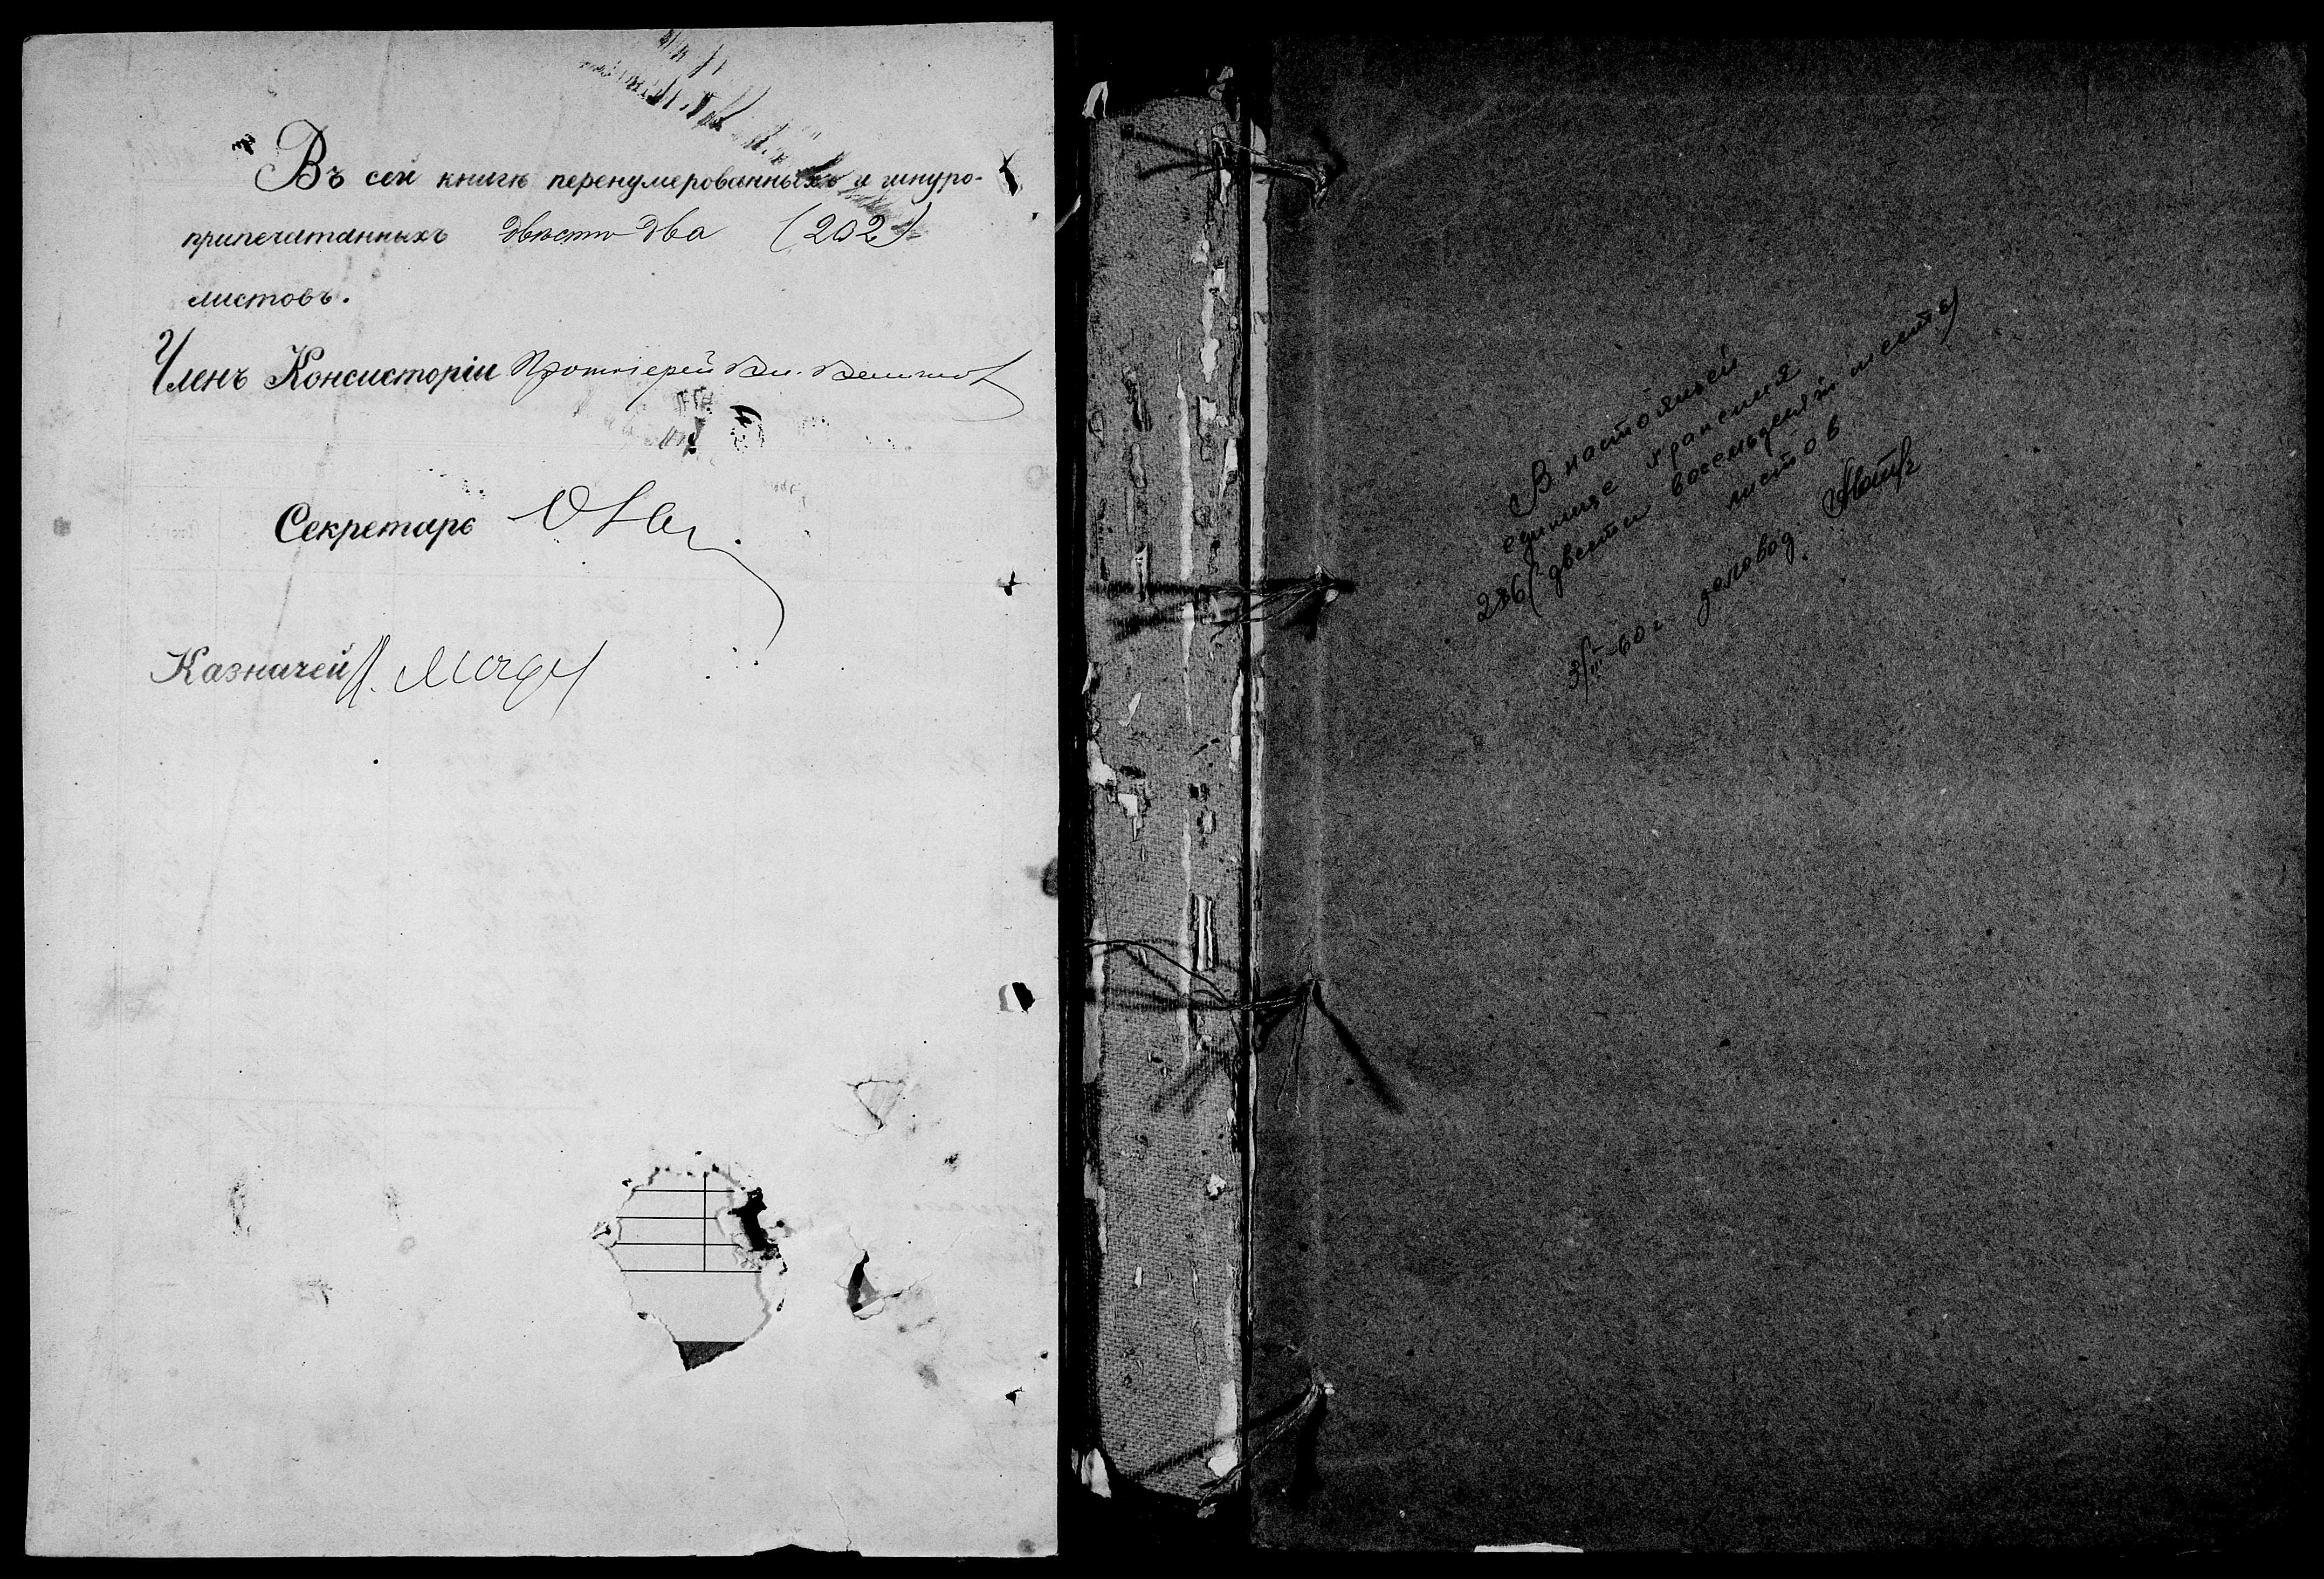 Въ сей книгѣ перенумерованныхъ и шнуро-
припечатанныхъ двѣсти два (202)
листовъ.
Членъ Консисторіи Протоіерей Вл.
Секретарь
Казначей
В настоящей
единице хранения
286 (двести восемьдесят шесть)
листов
3/III-60 г. деловод.